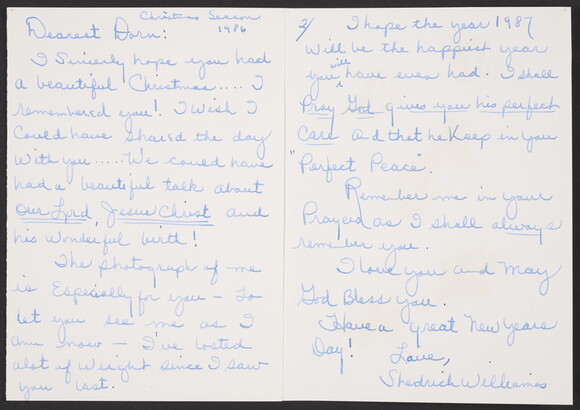 Christmas Season
1986
Dearest Dorn:
I Sincerly hope you had
a beautiful Christmas.... I
remembered you! I Wish I
Could have shared the day
With you.....We could have
had a beautiful talk about
Our Lord, Jesus Christ and
his wonderful birth!
The photograph of me
is Especially for you — To
let you see me as I
am now — I've losted
alot of weight since I saw
you last.
2/ I hope the year 1987
Will be the happiest year
you will have ever had. I shall
Pray God gives you his perfect
Care and that he Keep in you
"Perfect Peace".
Remember me in your
Prayers as I shall always
remember you.
I love you and May
God Bless you.
Have a great New Years
Day!
Love,
Shedrich Williames